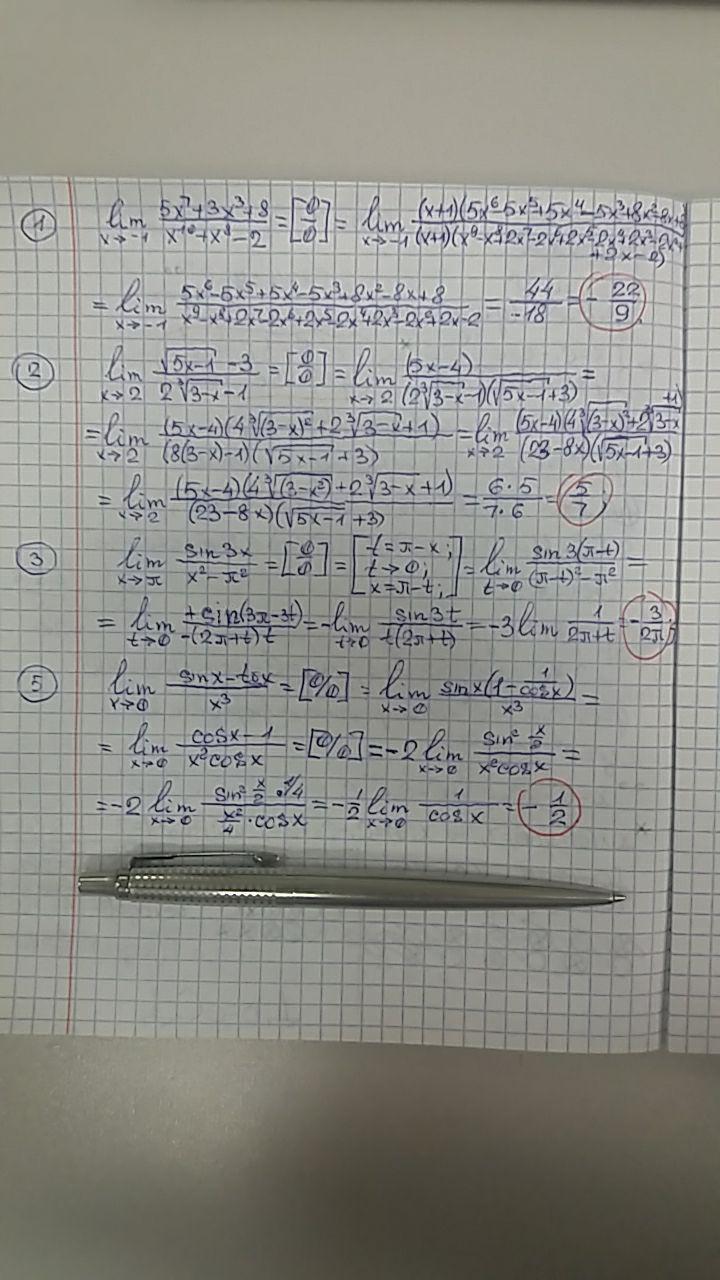 ① lim x→-1 (5x⁷+3x³+8)/(x¹⁰+x⁸-2) = [0/0] = lim x→-1 ((x+1)(5x⁶-5x⁵+5x⁴-5x³+8x²-8x+8))/((x+1)(x⁹-x⁸+2x⁷-2x⁶+2x⁵-2x⁴+2x³-2x²+2x-2))
= lim x→-1 (5x⁶-5x⁵+5x⁴-5x³+8x²-8x+8)/(x⁹-x⁸+2x⁷-2x⁶+2x⁵-2x⁴+2x³-2x²+2x-2) = 44/-18 = -22/9;
② lim x→2 (√(5x-1) -3)/(2∛(3-x)-1) = [0/0] = lim x→2 (5x-4)/((2∛(3-x)-1)(√(5x-1)+3)) =
= lim x→2 ((5x-4)(4∛(3-x)²+2∛(3-x)+1))/((8(3-x)-1)(√(5x-1)+3)) = lim x→2 ((5x-4)(4∛(3-x)²+2∛(3-x)+1))/((23-8x)(√(5x-1)+3))
= lim x→2 ((5x-4)(4∛(3-x²)+2∛(3-x)+1))/((23-8x)(√(5x-1)+3)) = 6·5/7·6 = 5/7;
③ lim x→π sin3x/(x²-π²) = [0/0] = [t=π-x; t→0; x=π-t;] = lim t→0 sin3(π-t)/((π-t)²-π²) =
= lim t→0 +sin(3π-3t)/(-(2π+t)t) = -lim t→0 sin3t/(t(2π+t)) = -3lim 1/(2π+t) = -3/2π;
⑤ lim x→0 (sinx-tgx)/x³ = [0/0] = lim x→0 sinx(1-1/cosx)/x³ =
= lim x→0 (cosx-1)/(x²cosx) = [0/0] = -2lim x→0 (sin² x/2)/(x²cosx) =
= -2 lim x→0 (sin² x/2 · 1/4)/(x²/4 · cosx) = -1/2 lim x→0 1/cosx = -1/2